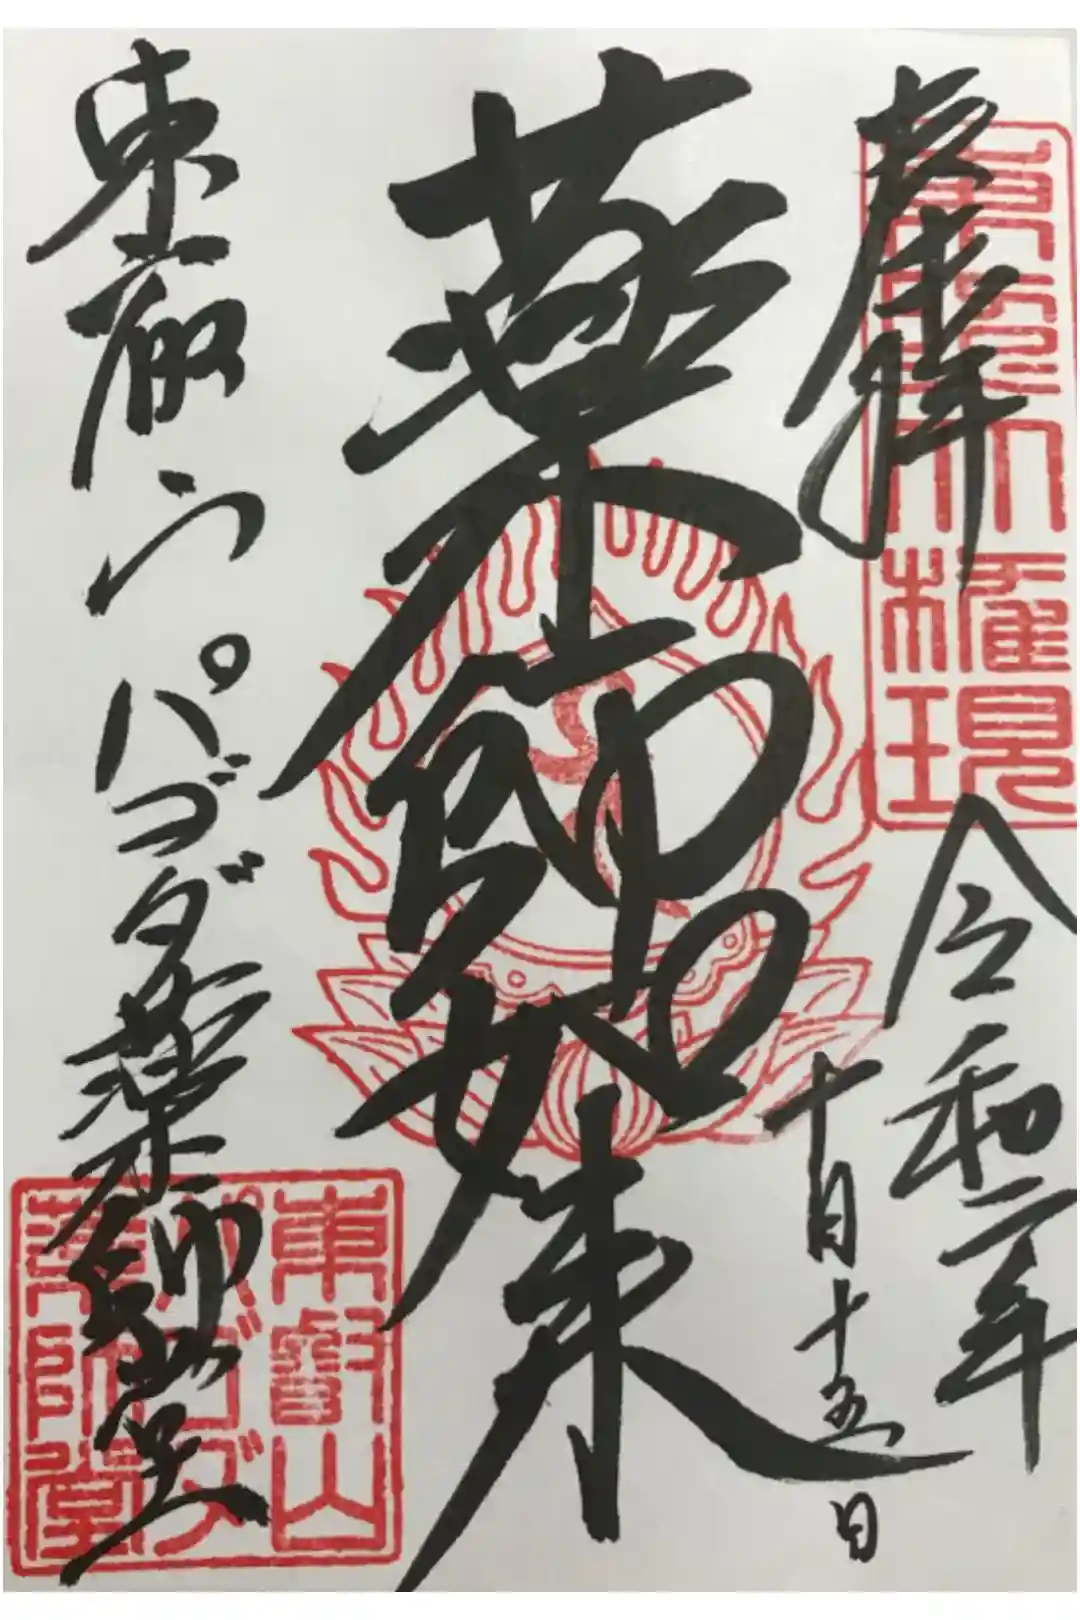 奉拝
東照大権現
令和二年
十月十五日
薬師如来
東叡山パゴダ薬師堂
東叡山
パゴダ
薬師堂